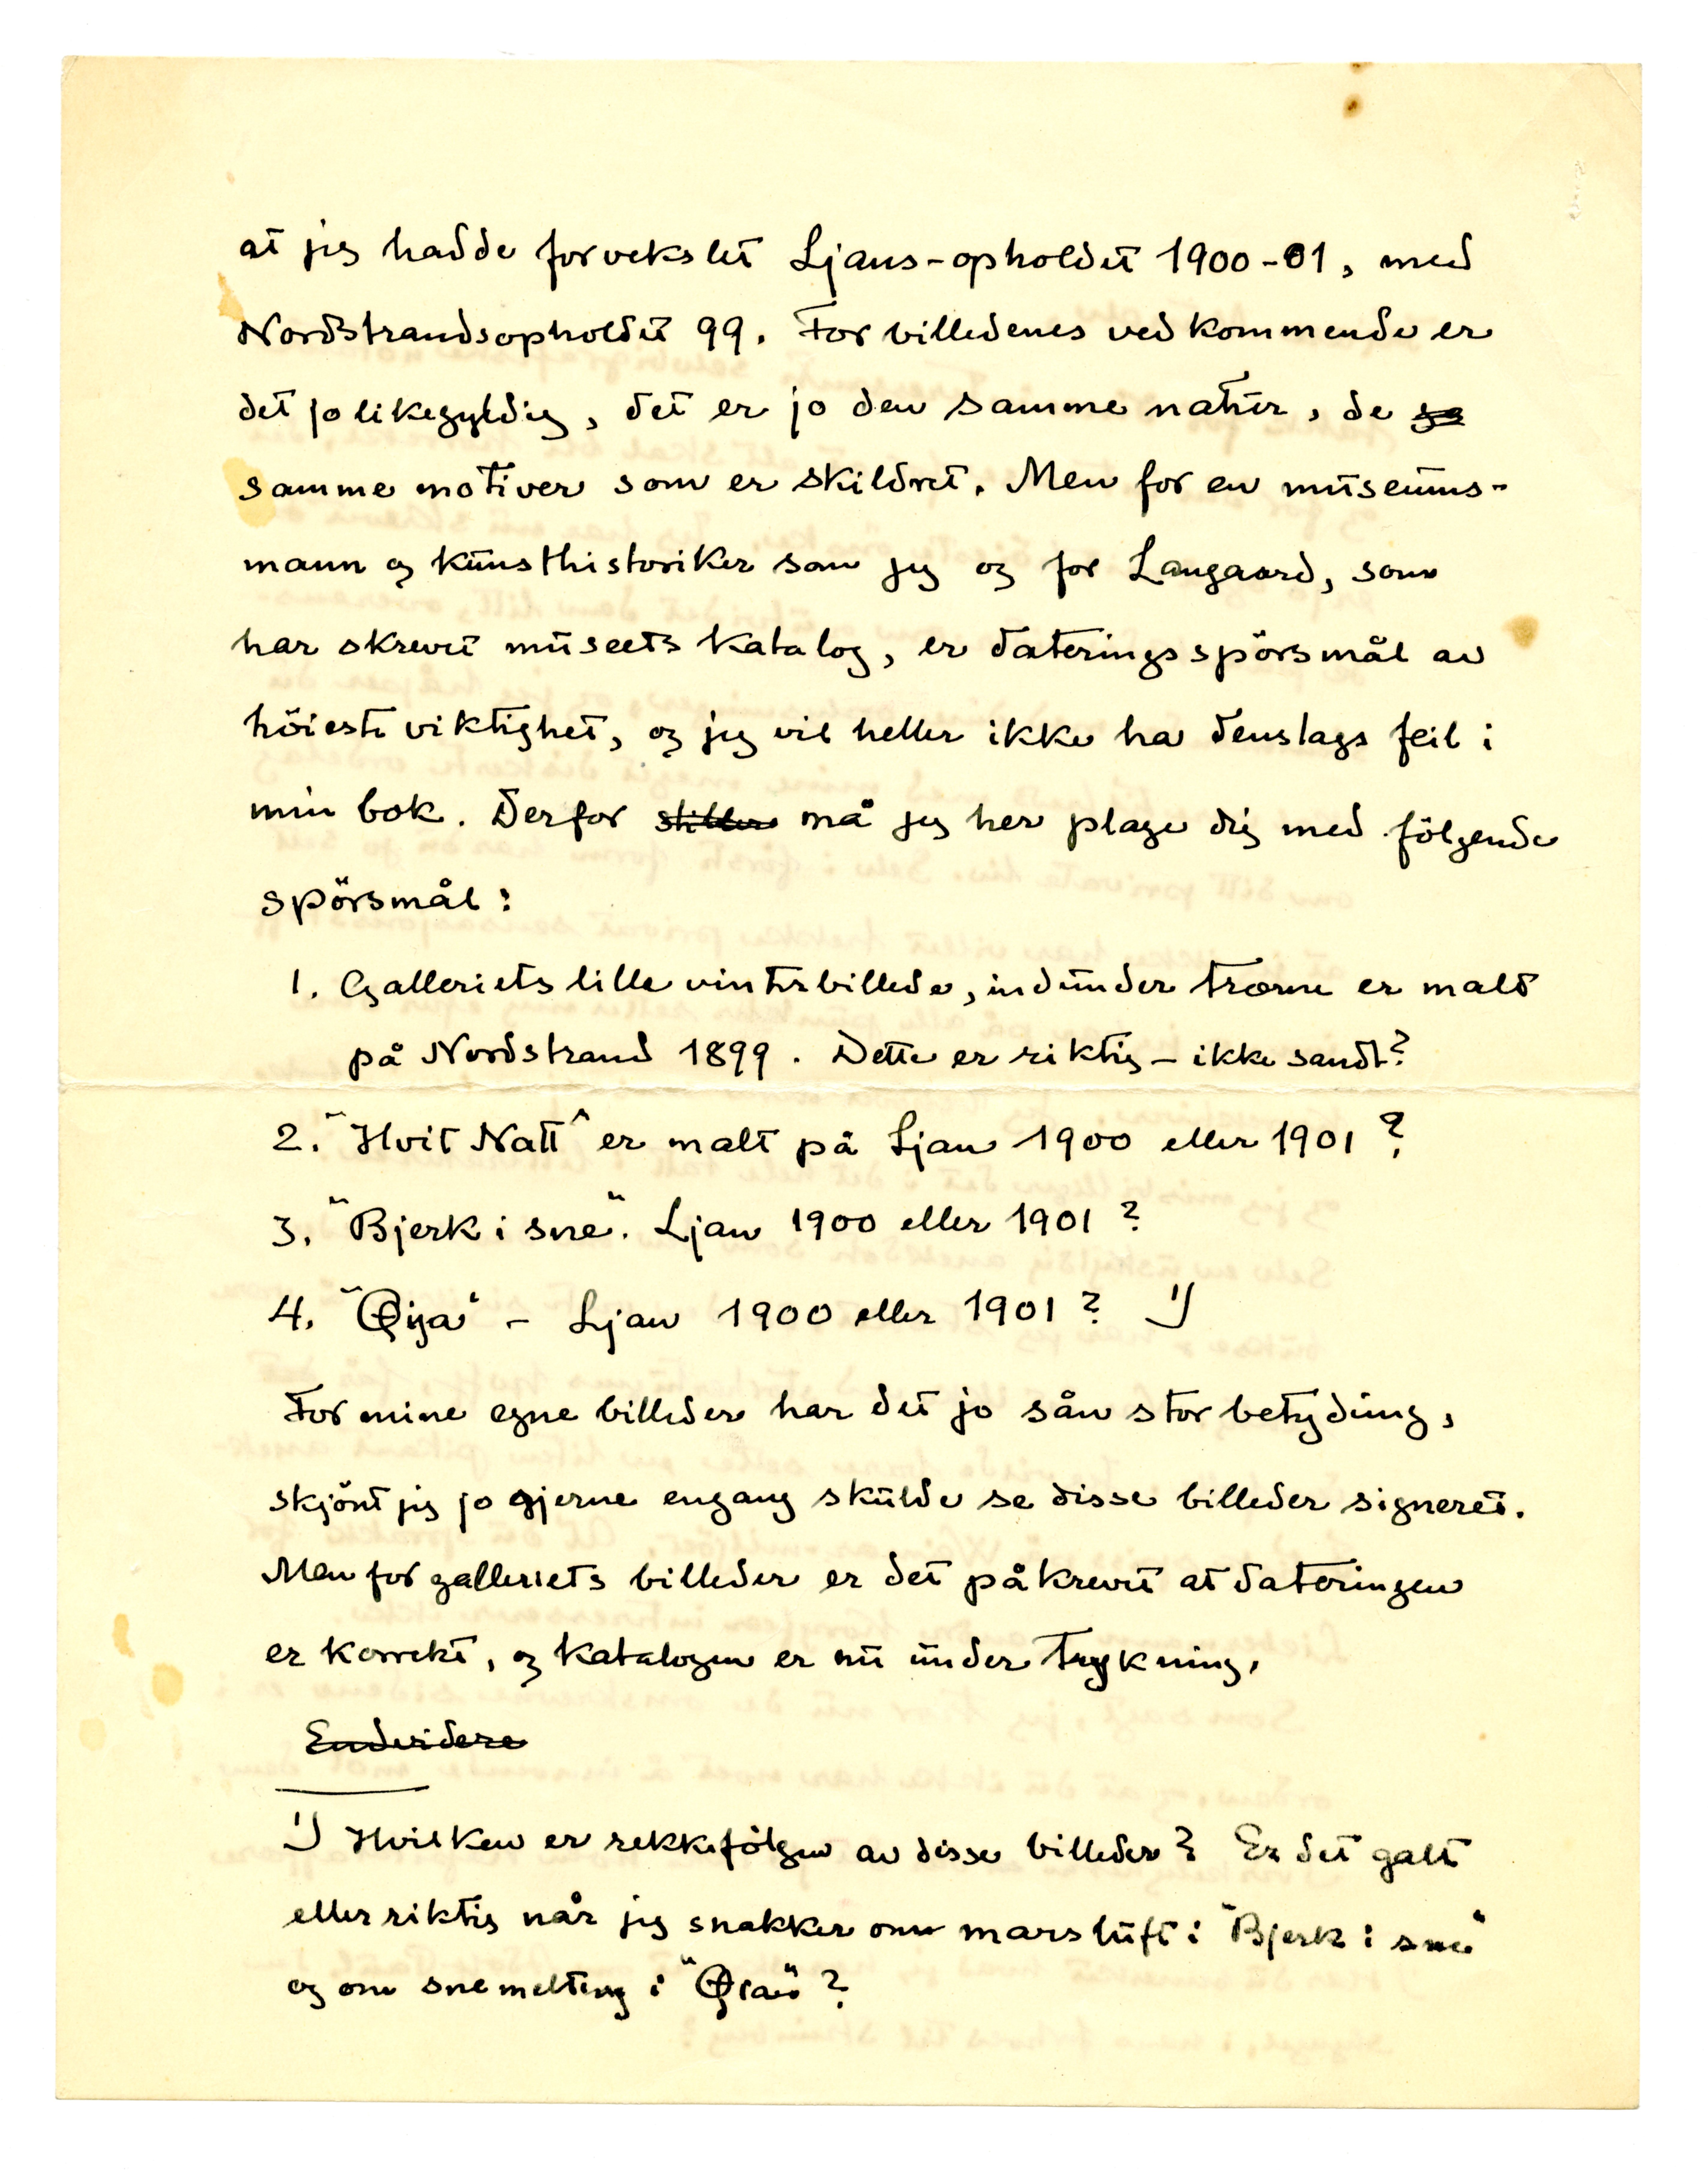 at jeg hadde forvekslet Ljans-opholdet 1900-01, med
Nordstrandsopholdet 99. For billedenes vedkommende er
det jo likegyldig, det er jo den samme natur, de sa
samme motiver som er skildret. Men for en museums-
mann og kunsthistoriker som jeg og for Langaard, som
har skrevet museets katalog, er dateringsspörsmål av
höieste viktighet, og jeg vil heller ikke ha denslags feil i
min bok. Derfor stiller må jeg her plage dig med fölgende
spörsmål:
1. Galleriets lille vinterbillede, indunder trærne er malt
på Nordstrand 1899. Dette er riktig – ikke sandt?
2. "Hvit Natt" er malt på Ljan 1900 eller 1901?
3. "Bjerk i sne". Ljan 1900 eller 1901?
4. "Øya" – Ljan 1900 eller 1901? 1)
For mine egne billeder har det jo sån stor betydning,
skjönt jeg jo gjerne engang skulde se disse billeder signeret.
Men for galleriets billeder er det påkrevet at dateringen
er korrekt, og katalogen er nu under trykning.
Endvidere
1) Hvilken er rekkefölgen av disse billeder? Er det galt
eller riktig når jeg snakker om marsluft i "Bjerk i sne"
og om snemelting i "Øia"?